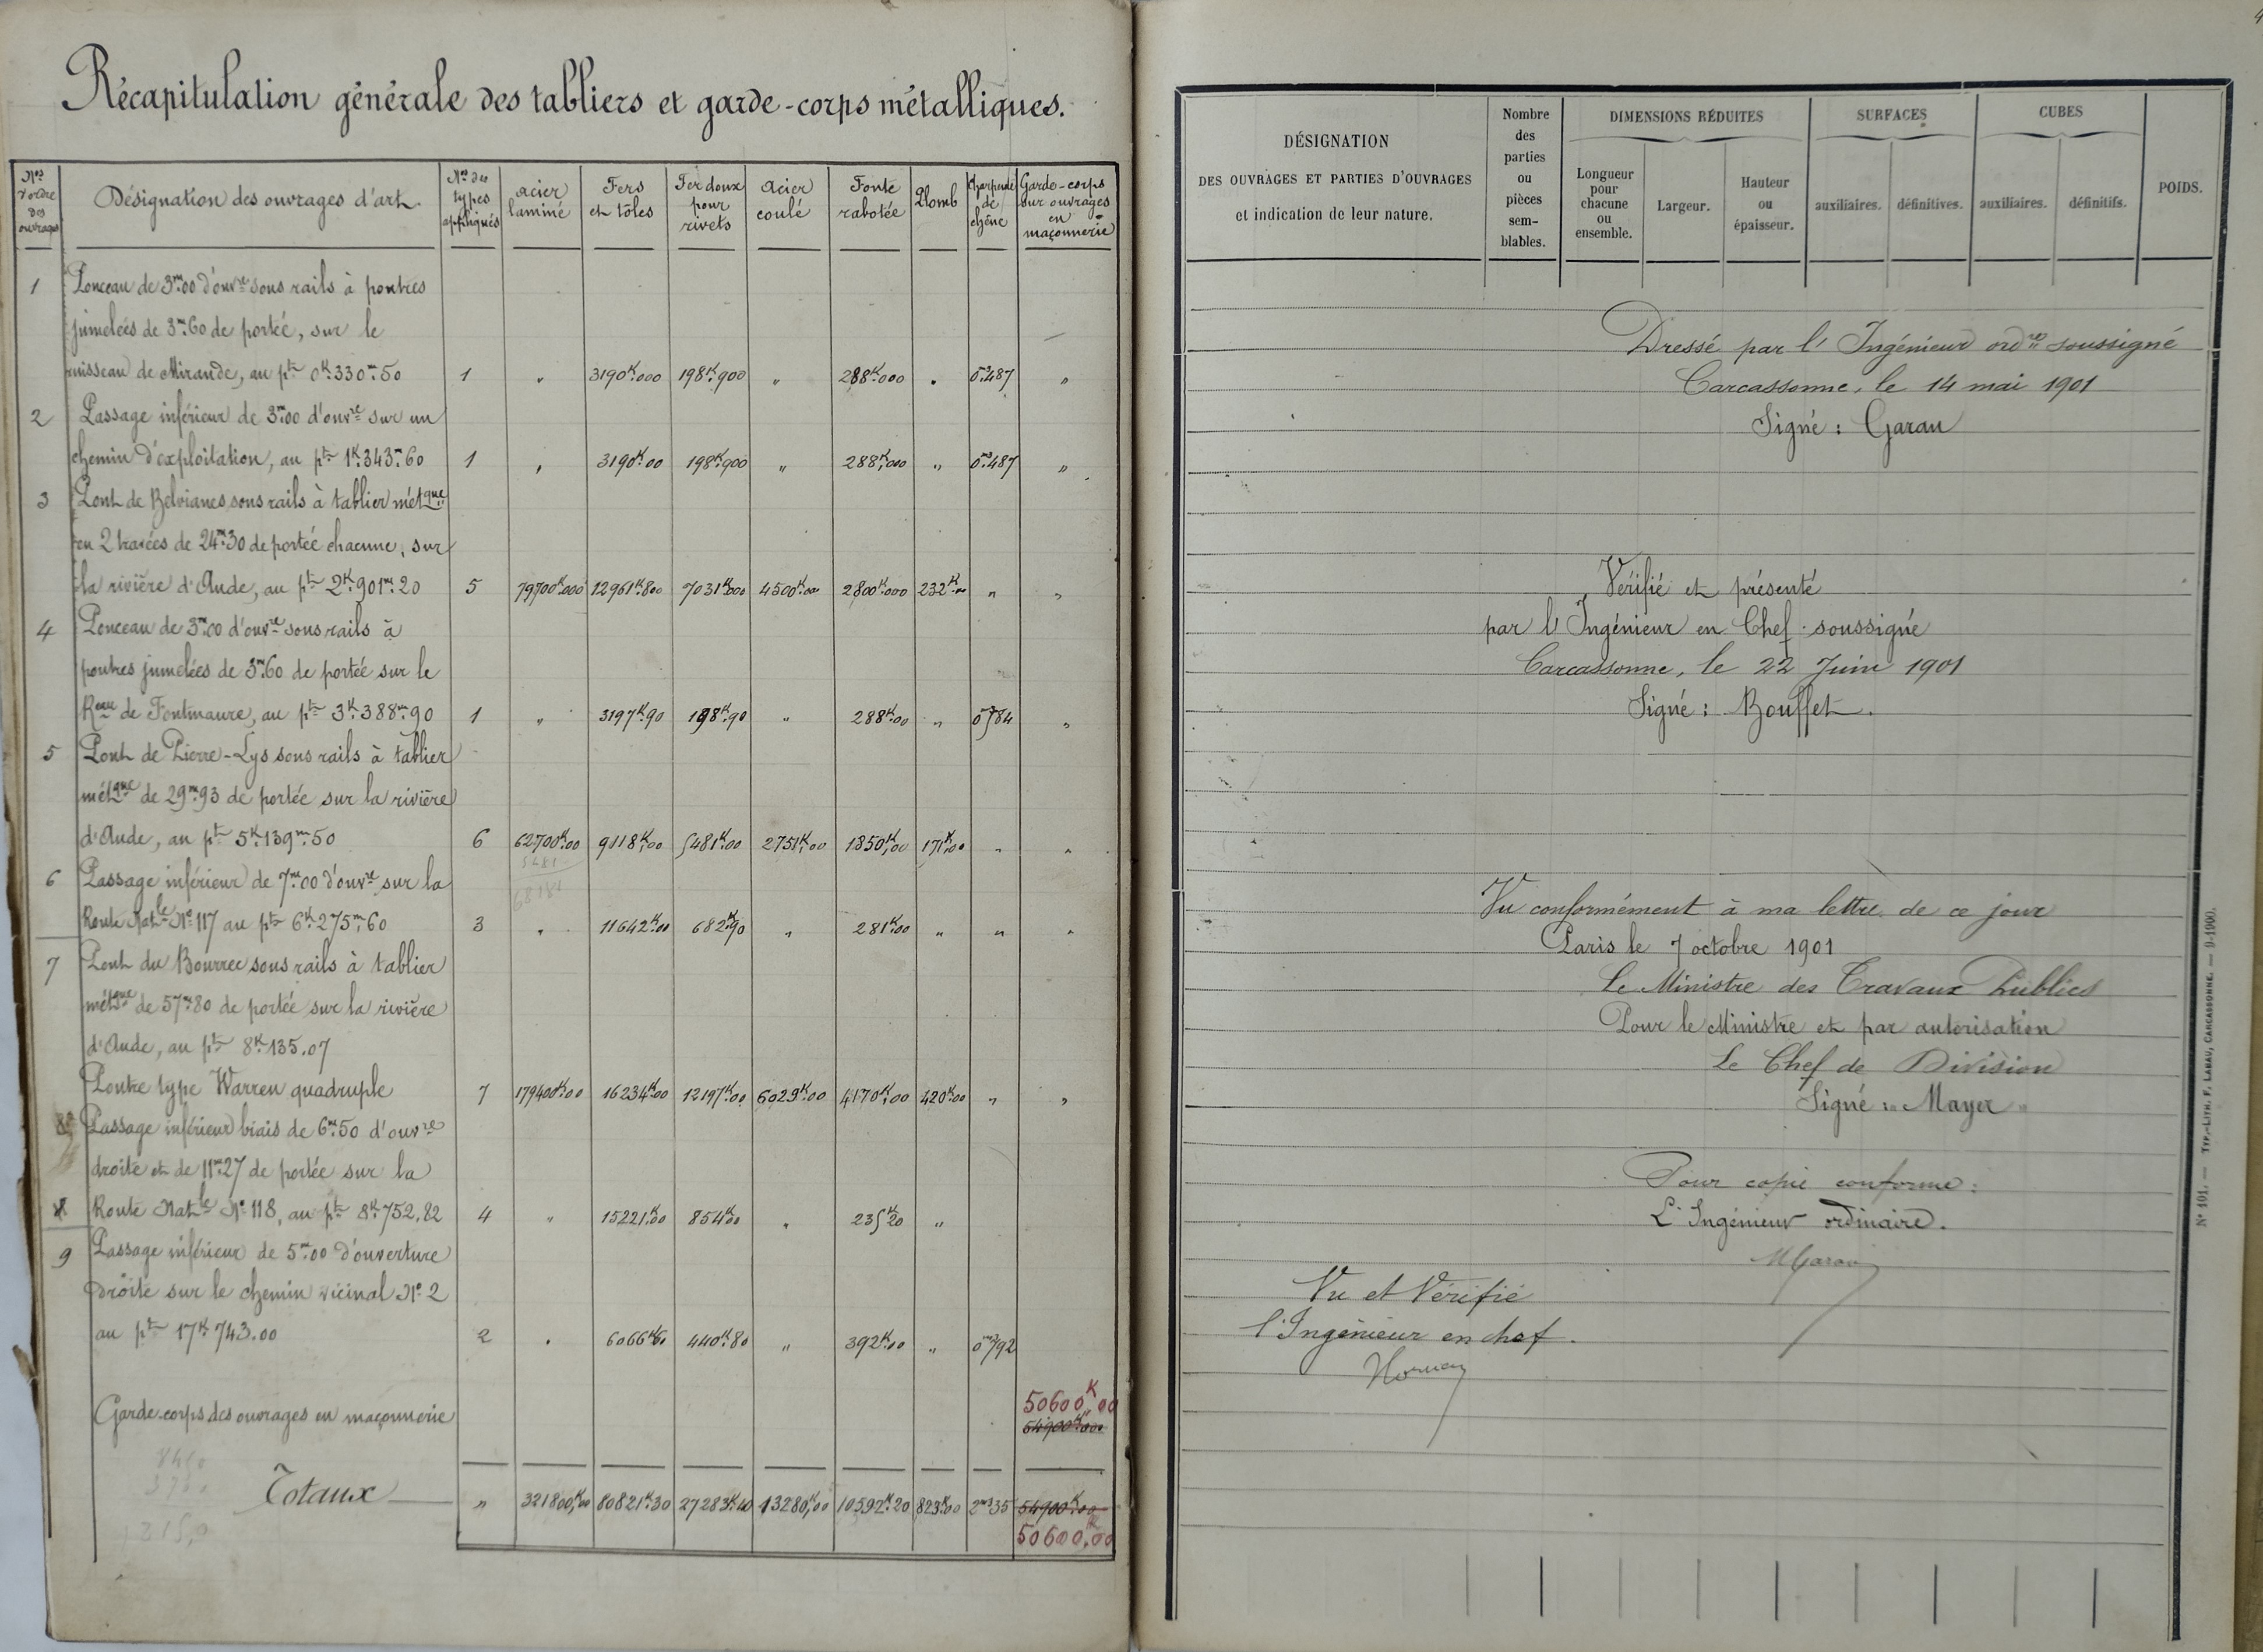 Récapitulation générale des tabliers et garde-corps métalliques.
Nos d'ordre des ouvrages
Désignation des ouvrages d'art.
Nos des types appliqués
acier laminé
Fers et tôles
Fer doux pour rivets
acier coulé
Fonte rabotée
Plomb
Charpente de chêne
Garde-corps sur ouvrages en maçonnerie
1 Ponceau de 3m.00 d'ouvre sous rails à poutres
jumelées de 3m.60 de portée, sur le
ruisseau de Mirande, au pt 0K.330m.50 1 " 3190K.000 198K.900 " 288K.000 " 0m3.487 "
2 Passage inférieur de 3m.00 d'ouvre sur un
chemin d'exploitation, au pt 1K.343m.60 1 " 3190K.00 198K.900 " 288K.000 " 0m3.487 "
3 Pont de Belvianes sous rails à tablier métque
en 2 travées de 24m.30 de portée chacune, sur
la rivière d'Aude, au pt 2K.901m.20 5 79700K.000 12961K.800 7031K.000 4500K.00 2800K.000 232K.00 " "
4 Ponceau de 3m.00 d'ouvre sous rails à
poutres jumelées de 3m.60 de portée sur le
Reau de Fontmaure, au pt 3K.388m.90 1 " 3197K.90 198K.90 " 288K.00 " 0m3.584 "
5 Pont de Pierre-Lys sous rails à tablier
métque de 29m.93 de portée sur la rivière
d'Aude, au pt 5K.139m.50 6 62700K.00 9118K.00 5481K.00 2751K.00 1850K.00 171K.00 " "
5481
68181
6 Passage inférieur de 7m.00 d'ouvre sur la
Route Natle No 117 au pt 6K.275m.60 3 " 11642K.00 682K.90 " 281K.00 " " "
7 Pont du Bourrec sous rails à tablier
métque de 57m.80 de portée sur la rivière
d'Aude, au pt 8K.135.07
Poutre type Warren quadruple 7 179400K.00 16234K.00 12197K.00 6029K.00 4170K.00 420K.00 " "
8 Passage inférieur biais de 6m.50 d'ouvre
droite et de 11m.27 de portée sur la
Route Natle No 118, au pt 8K.752.82 4 " 15221K.00 854K.00 " 235K.20 "
9 Passage inférieur de 5m.00 d'ouverture
Droite sur le chemin vicinal No 2
au pt 17K.743.00 2 " 6066K.60 440K.80 " 392K.00 " 0m3.792
50600K.00
Garde-corps des ouvrages en maçonnerie 54900K.00
Totaux " 321800K.00 80821K.30 27283K.40 13280K.00 10592K.20 823K.00 2m3.35 54900K.00
50600K.00
DÉSIGNATION
DES OUVRAGES ET PARTIES D'OUVRAGES
et indication de leur nature.
Nombre des parties ou pièces sem- blables.
DIMENSIONS RÉDUITES
Longueur pour chacune ou ensemble.
Largeur.
Hauteur ou épaisseur.
SURFACES
auxiliaires.
définitives.
CUBES
auxiliaires.
définitifs.
POIDS.
Dressé par l'Ingénieur ordre soussigné
Carcassonne, le 14 mai 1901
Signé : Garau
Vérifié et présenté
par l'Ingénieur en Chef soussigné
Carcassonne, le 22 Juin 1901
Signé : Bouffet.
Vu conformément à ma lettre de ce jour
Paris le 7 octobre 1901
Le Ministre des Travaux Publics
Pour le Ministre et par autorisation
Le Chef de Division
Signé : Mayer
Pour copie conforme :
L'Ingénieur ordinaire.
MGarau
Vu et Vérifié
l'Ingénieur en chef.
No 101. — TYP.-LITH. F. LABAU, CARCASSONNE. — 9-1900.